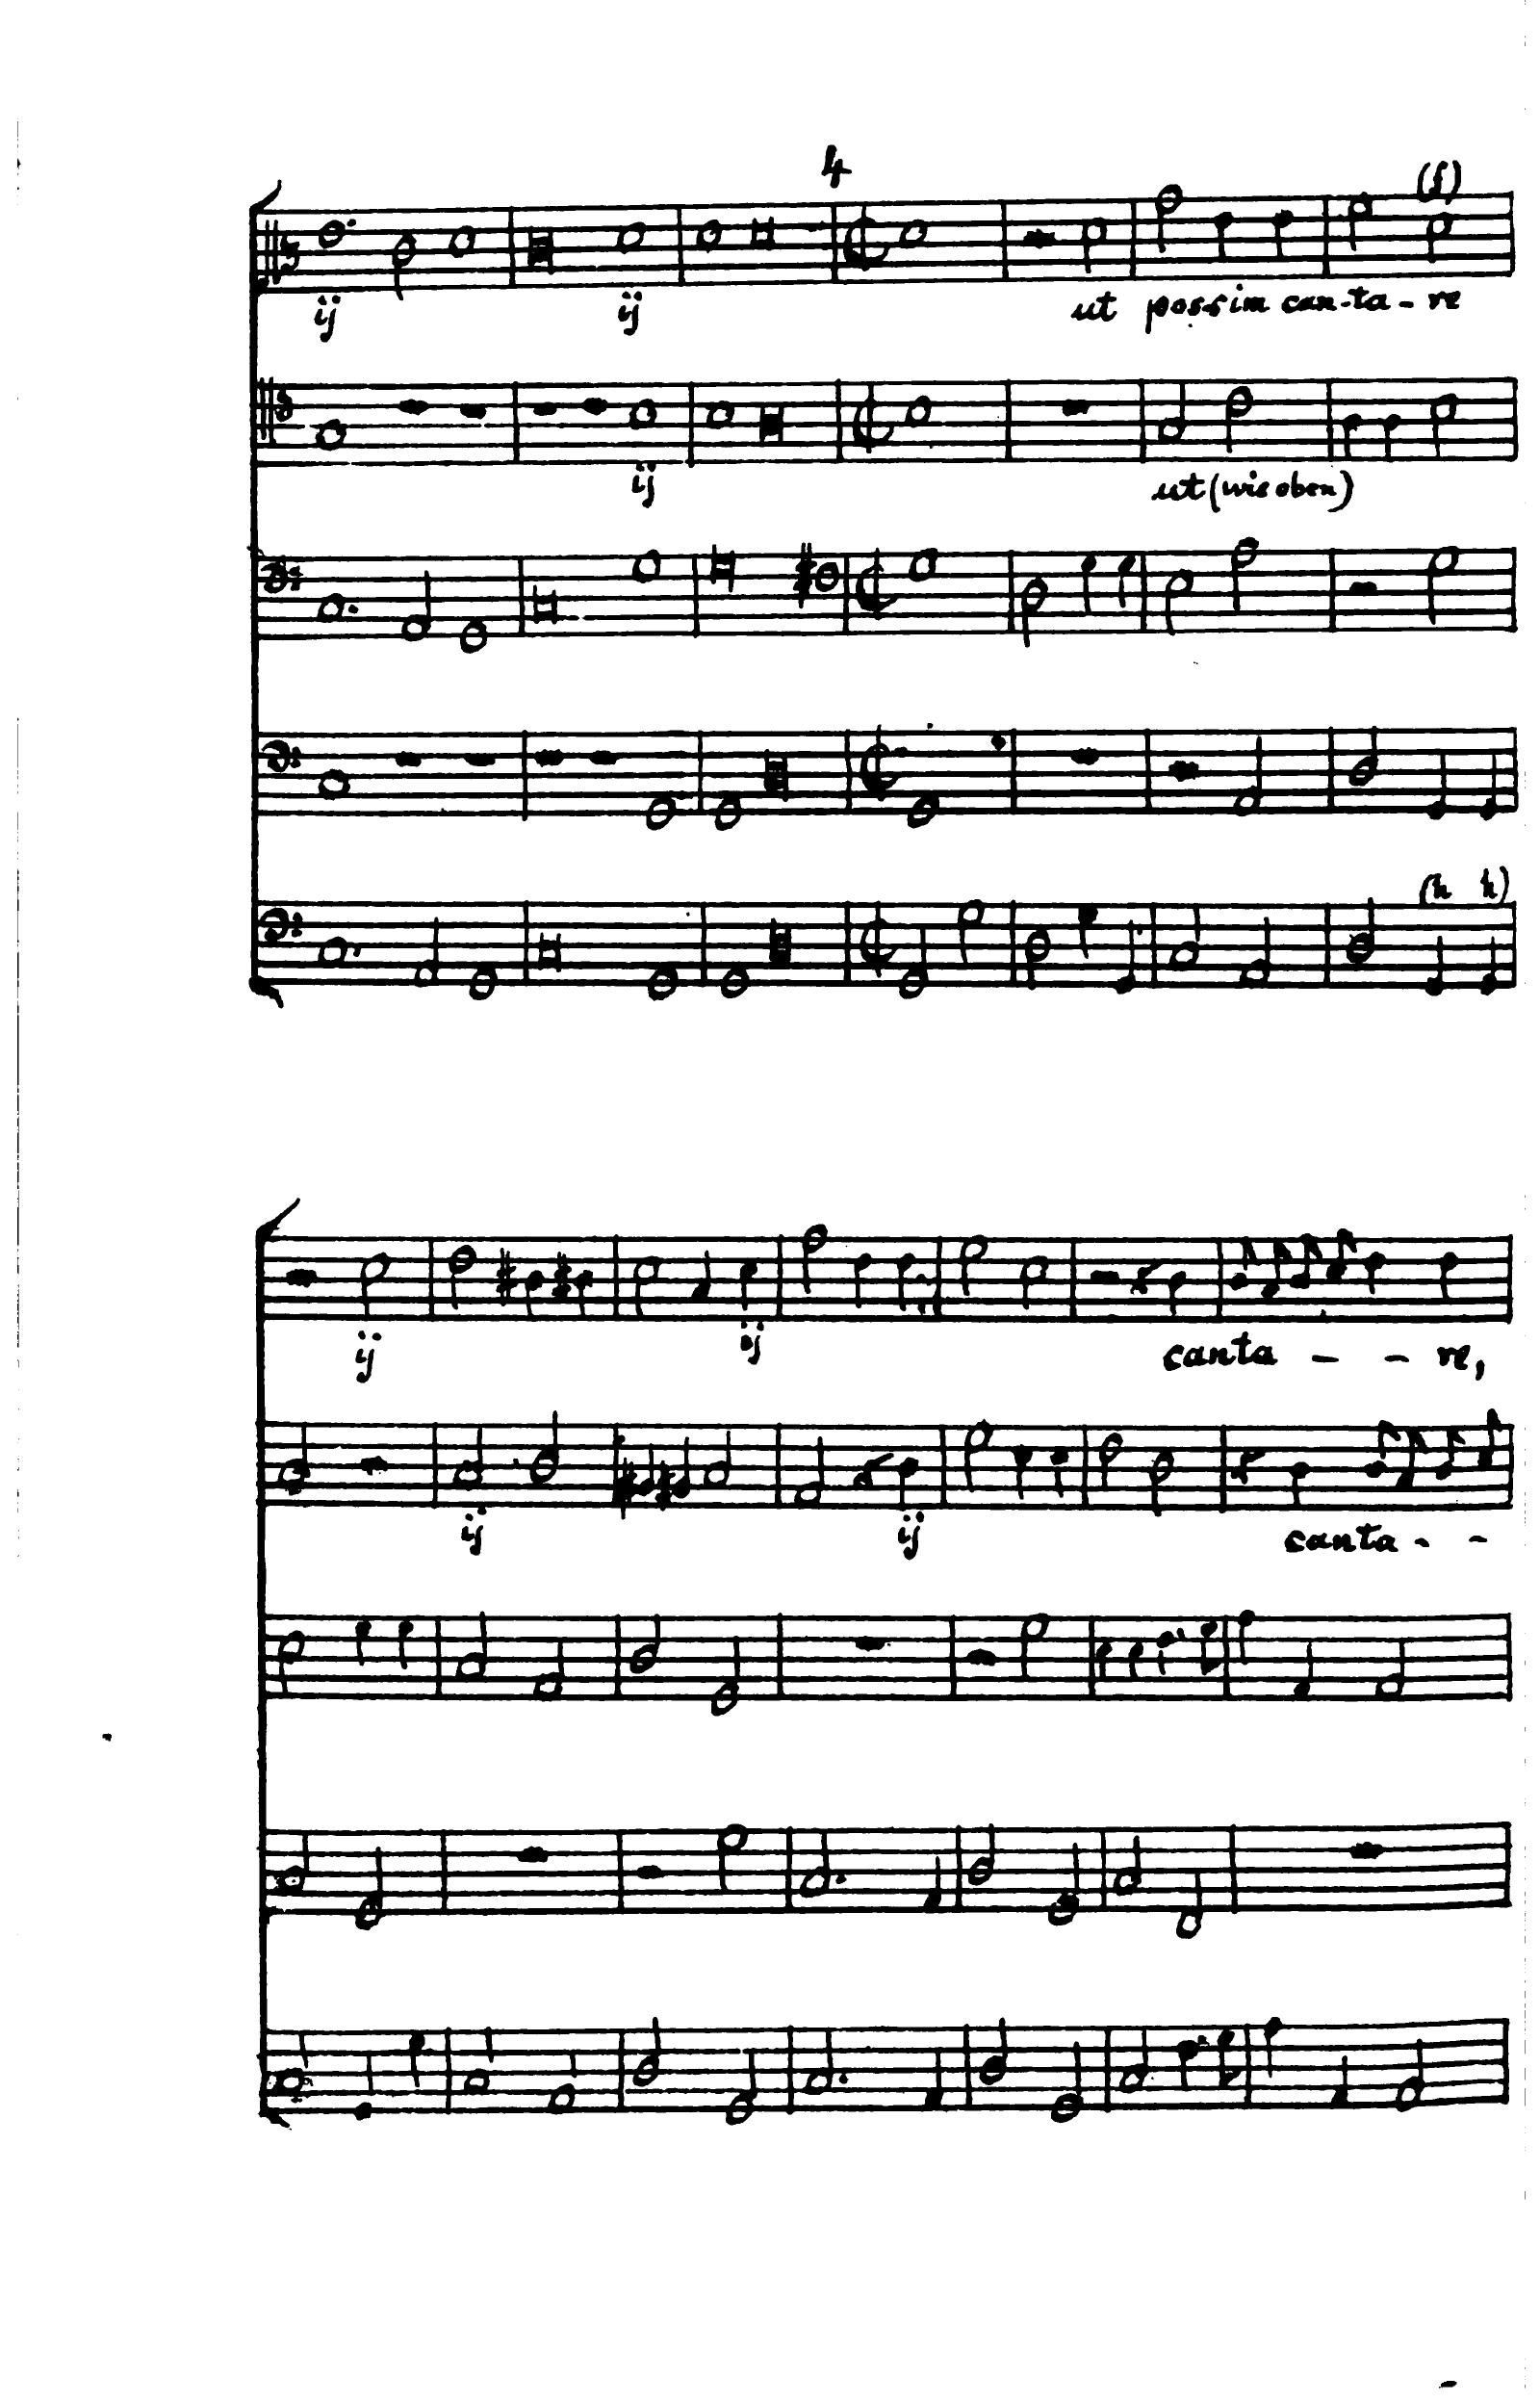 4
(f)
ij ij ut possim can-ta-re
ij ut (wie oben)
(h h)
ij ij canta - - re,
ij ij canta - -